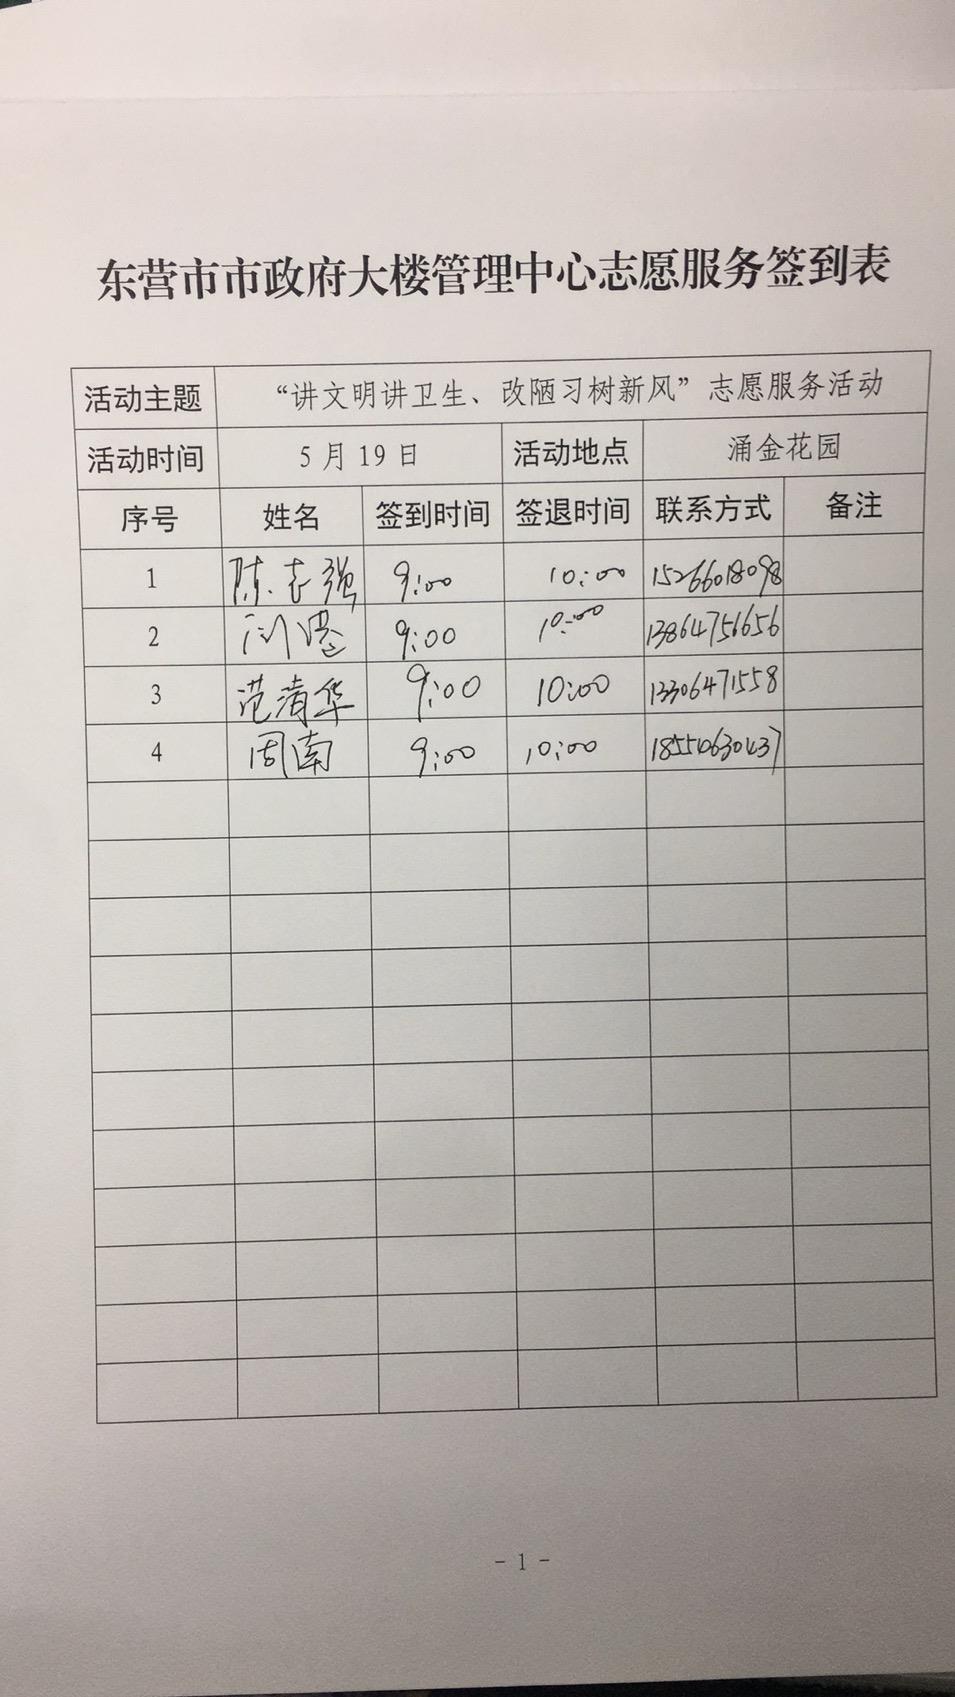 东营市市政府大楼管理中心志愿服务签到表
活动主题 “讲文明讲卫生、改陋习树新风”志愿服务活动
活动时间 5月19日 活动地点 涌金花园
序号 姓名 签到时间 签退时间 联系方式 备注
1 陈志强 9:00 10:00 15266018098
2 9:00 10:00 13864756656
3 范清华 9:00 10:00 13306471558
4 周南 9:00 10:00 18554630437
- 1 -